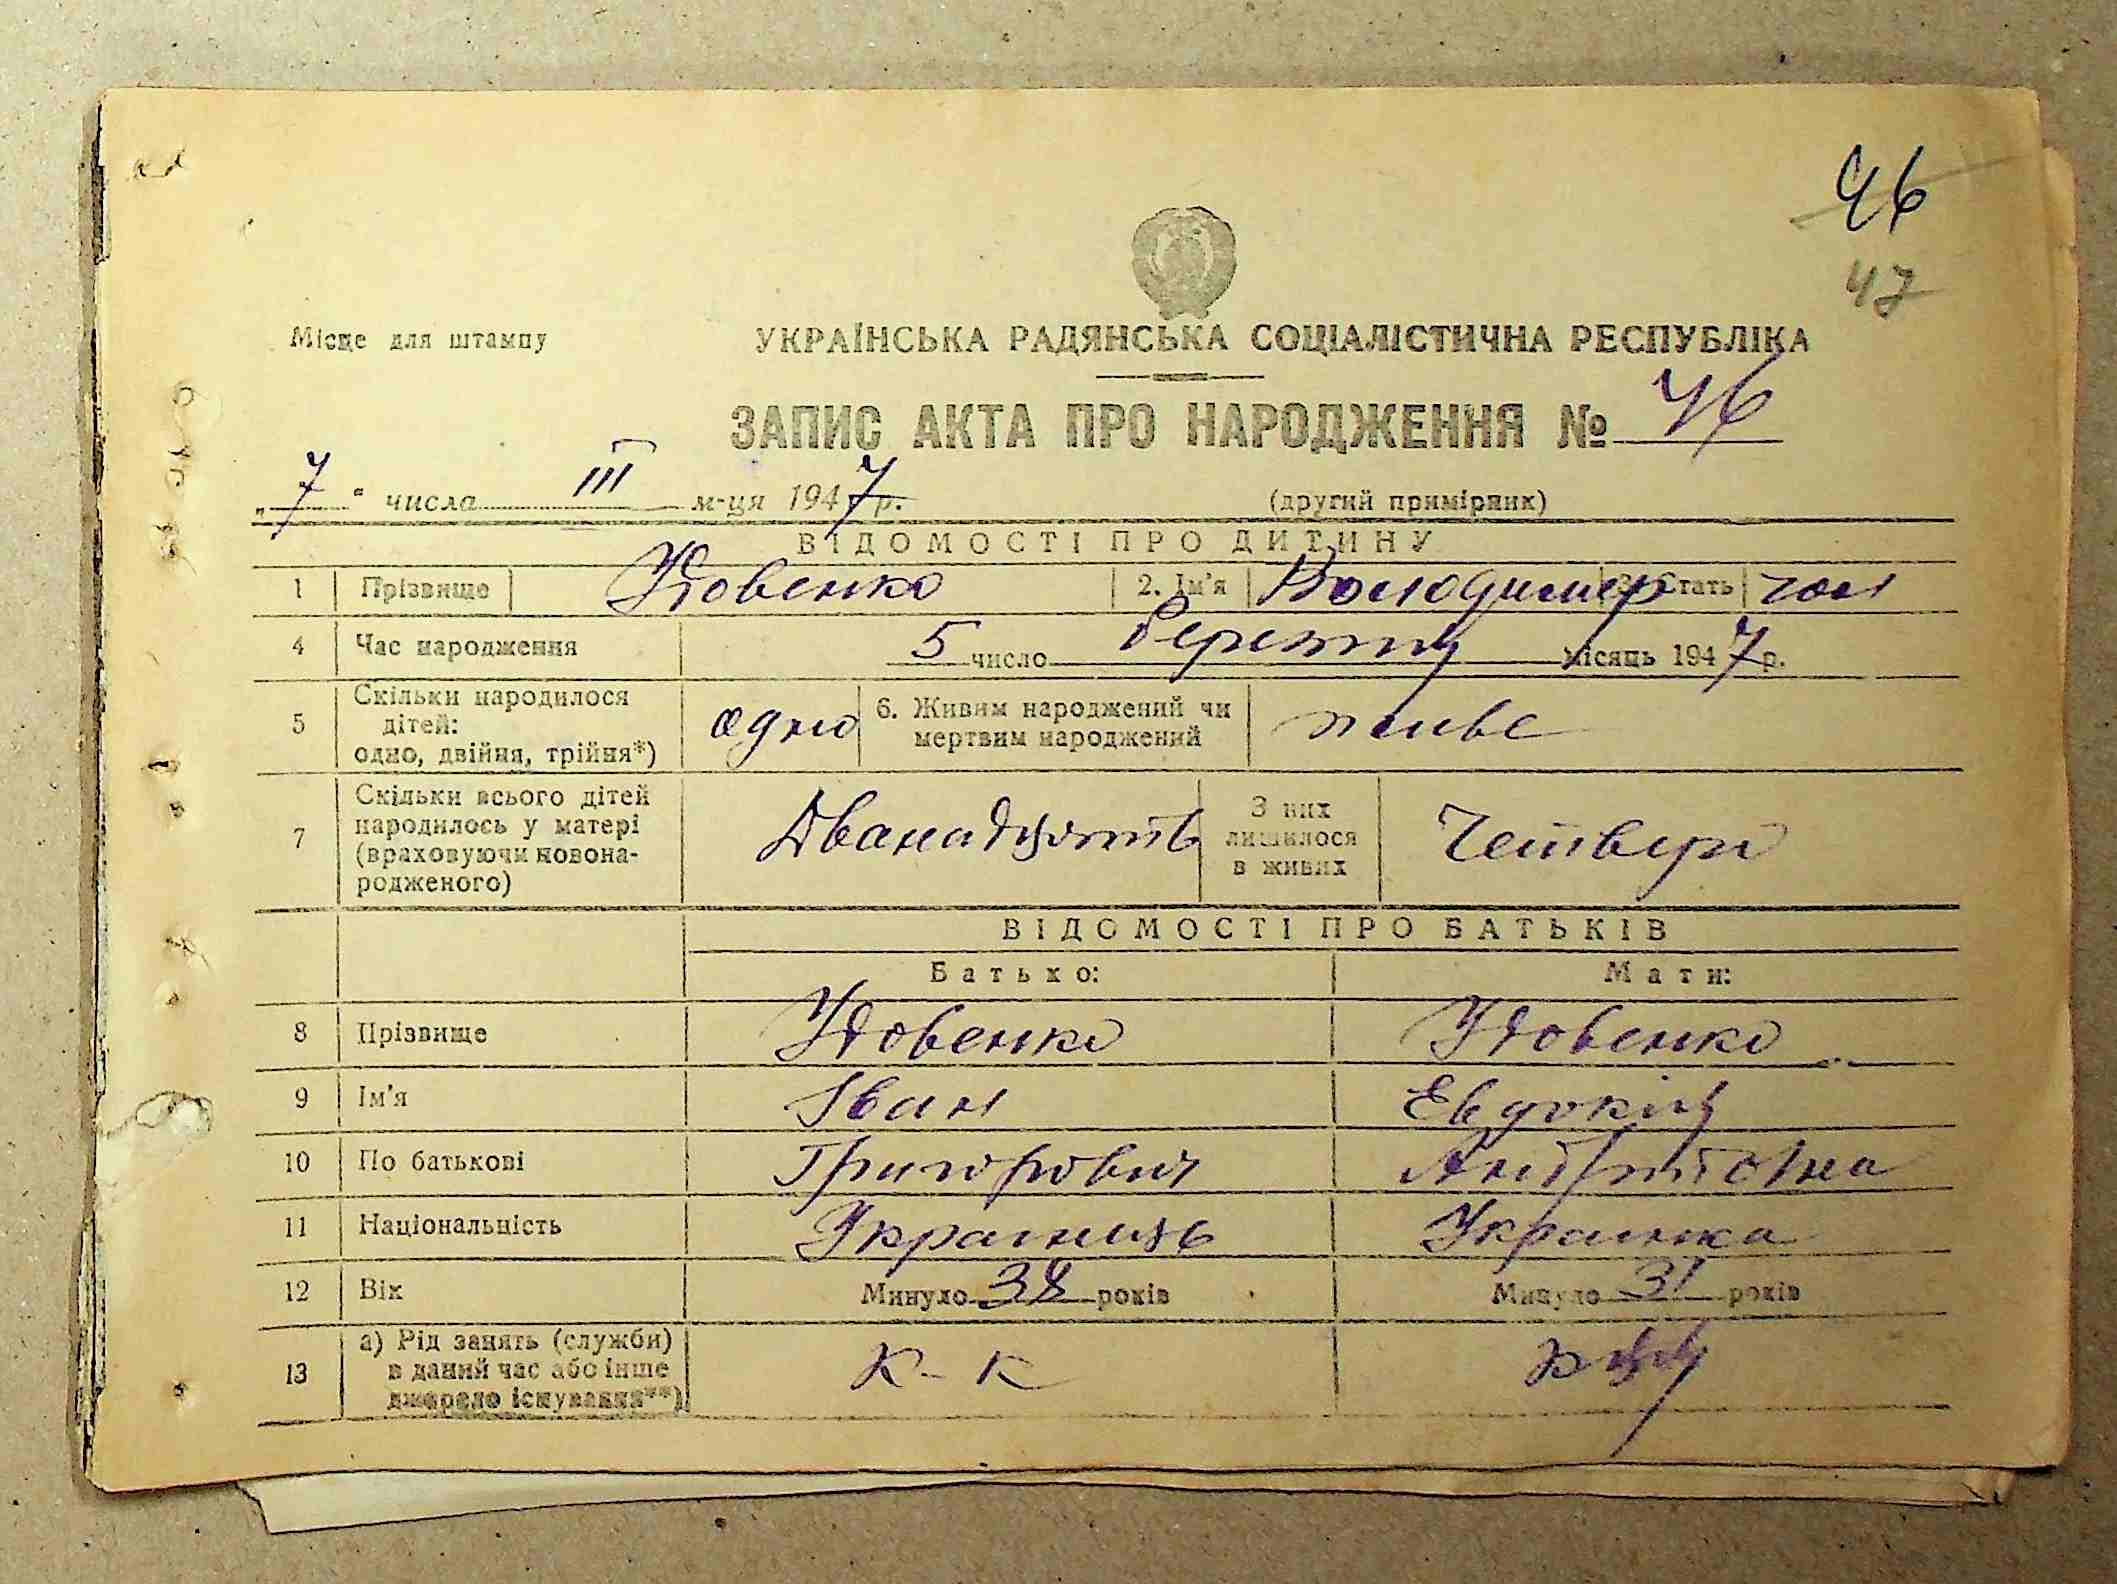 46
47
Місце для штампу
УКРАЇНСЬКА РАДЯНСЬКА СОЦІАЛІСТИЧНА РЕСПУБЛІКА
ЗАПИС АКТА ПРО НАРОДЖЕННЯ № 46
„7“ числа III м-ця 1947 р. (другий примірник)
ВІДОМОСТІ ПРО ДИТИНУ
1 Прізвище Удовенко 2. Ім'я Володимир 3. Стать чол
4 Час народження 5 число березня місяць 1947 р.
5 Скільки народилося дітей: одно, двійня, трійня*) одно 6. Живим народжений чи мертвим народжений живе
7 Скільки всього дітей народилось у матері (враховуючи новонародженого) Дванадцять З них лишилося в живих Четверо
ВІДОМОСТІ ПРО БАТЬКІВ
Батько: Мати:
8 Прізвище Удовенко Удовенко
9 Ім'я Іван Евдокія
10 По батькові Григорович
11 Національність Украинець Украинка
12 Вік Минуло 38 років Минуло 31 років
13 а) Рід занять (служби) в даний час або інше джерело існування**) к-к